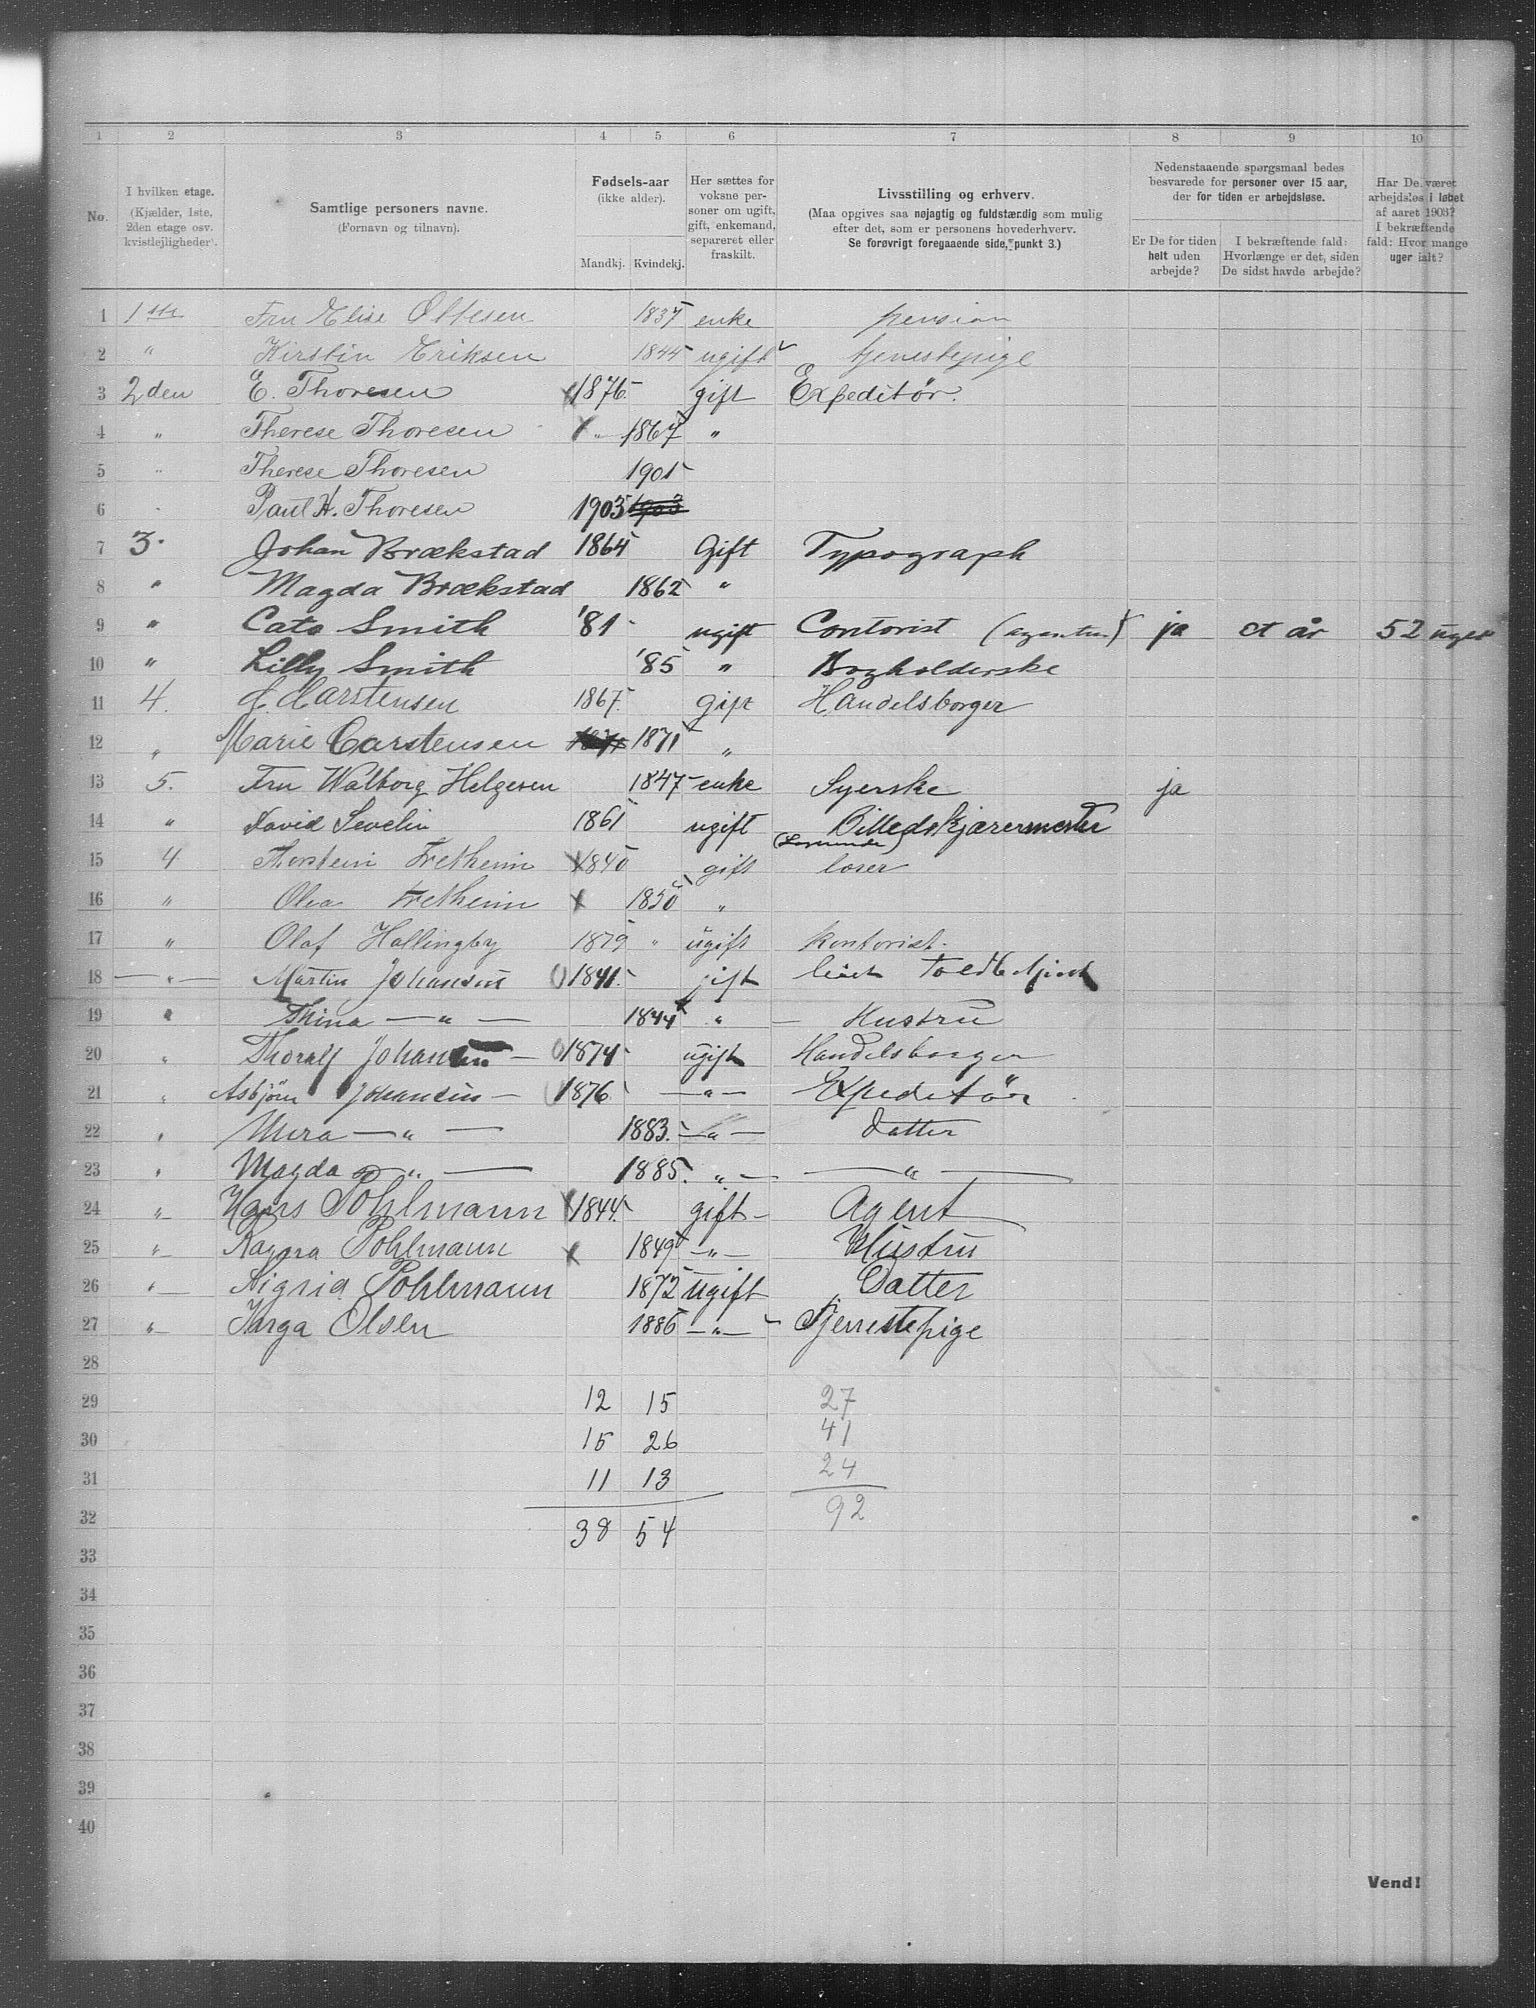 1 2 3 4 5 6 7 8 9 10
No.
I hvilken etage.
(Kjælder, 1ste, 2den etage osv. kvistlejligheder).
Samtlige personers navne.
(Fornavn og tilnavn).
Fødsels-aar
(ikke alder).
Mandkj. Kvindekj.
Her sættes for voksne personer om ugift, gift, enkemand, separeret eller fraskilt.
Livsstilling og erhverv.
(Maa opgives saa nøjagtig og fuldstændig som mulig efter det, som er personens hovederhverv.
Se forøvrigt foregaaende side, punkt 3.)
Nedenstaaende spørgsmaal bedes besvarede for personer over 15 aar, der for tiden er arbejdsløse.
Er De for tiden helt uden arbejde?
I bekræftende fald: Hvorlænge er det, siden De sidst havde arbejde?
Har De været arbejdsløs i løbet af aaret 1903? I bekræftende fald: Hvor mange uger ialt?
1 1ste Fru Elise Ottesen 1837 enke pension
2 " Kirstin Eriksen 1844 ugift tjenestepige
3 2den E. Thoresen 1876 gift Expeditör.
4 " Therese Thoresen " 1867 "
5 " Therese Thoresen 1901
6 " Paul H. Thoresen 1903 1903
7 3. Johan Brækstad 1864 Gift Typograph
8 " Magda Brækstad 1862 "
9 " Cato Smith '81 ugift Contorist (agentur) ja et år 52 uger
10 " Lilly Smith '85 " Bogholderske
11 4. Carstensen 1867. Gift Handelsborger
12 " Marie Carstensen 1871 1871 "
13 5. Fru Walborg Helgesen 1847 enke Syerske ja
14 " David Sevelin 1861 ugift Billedskjærermester
15 4 Thorstein Fretheim 1840 gift (Losserende) loser
16 " Olea Fretheim 1850 "
17 " Olaf Hallingby 1879 " ugift kontorist.
18 — " — Martin Johansen 1841. gift
19 " Thina — " — 1844 " — Hustru
20 " Thoralf Johansen — 1874 ugift Handelsborger
21 " Asbjörn Johansen — 1876 — " — Expeditör
22 " Mira — " — 1883. — " — Datter
23 " Magda — " — 1885. " — — " —
24 " Hans Pohlmann 1844. gift — Agent
25 " Ragna Pohlmann 1849 — " — Hustru
26 " Sigrid Pohlmann 1872 ugift Datter
27 " Inga Olsen 1886 — " — Tjenestepige
28
29 12 15 27
30 15 26 41
31 11 13 24
32 38 54 92
33
34
35
36
37
38
39
40
Vend!